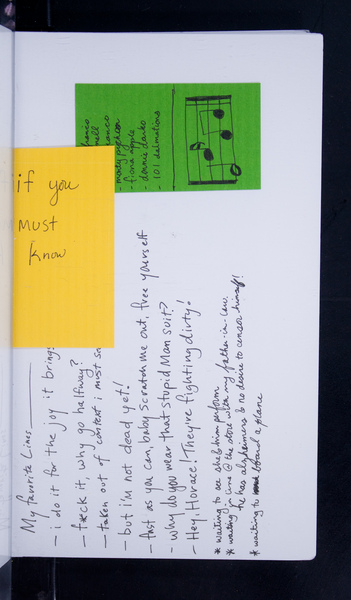 if you
must
know
- mody psychen
- fiona apple
- donnie darko
- 101 dalmations
My favorite Lines
- i do it for the joy it brings
- f*ck it, why go halfway?
- taken out of context i must so
- but i'm not dead yet!
- fast as you can, baby scratch me out, free yourself
- why do you wear that stupid Man suit?
- Hey, Horace! They're fighting dirty!
* waiting to see him perform
* waiting in line @ the store when my father-in-law.
he has alzheimers & no desire to censor himself!
* waiting to board a plane